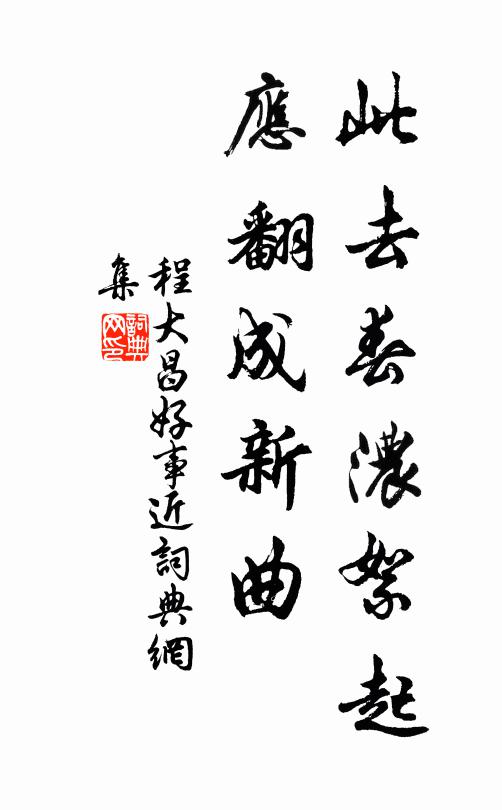 此去春濃絮起
應翻成新曲
程大昌好事近詞典網
集
詞典
网印